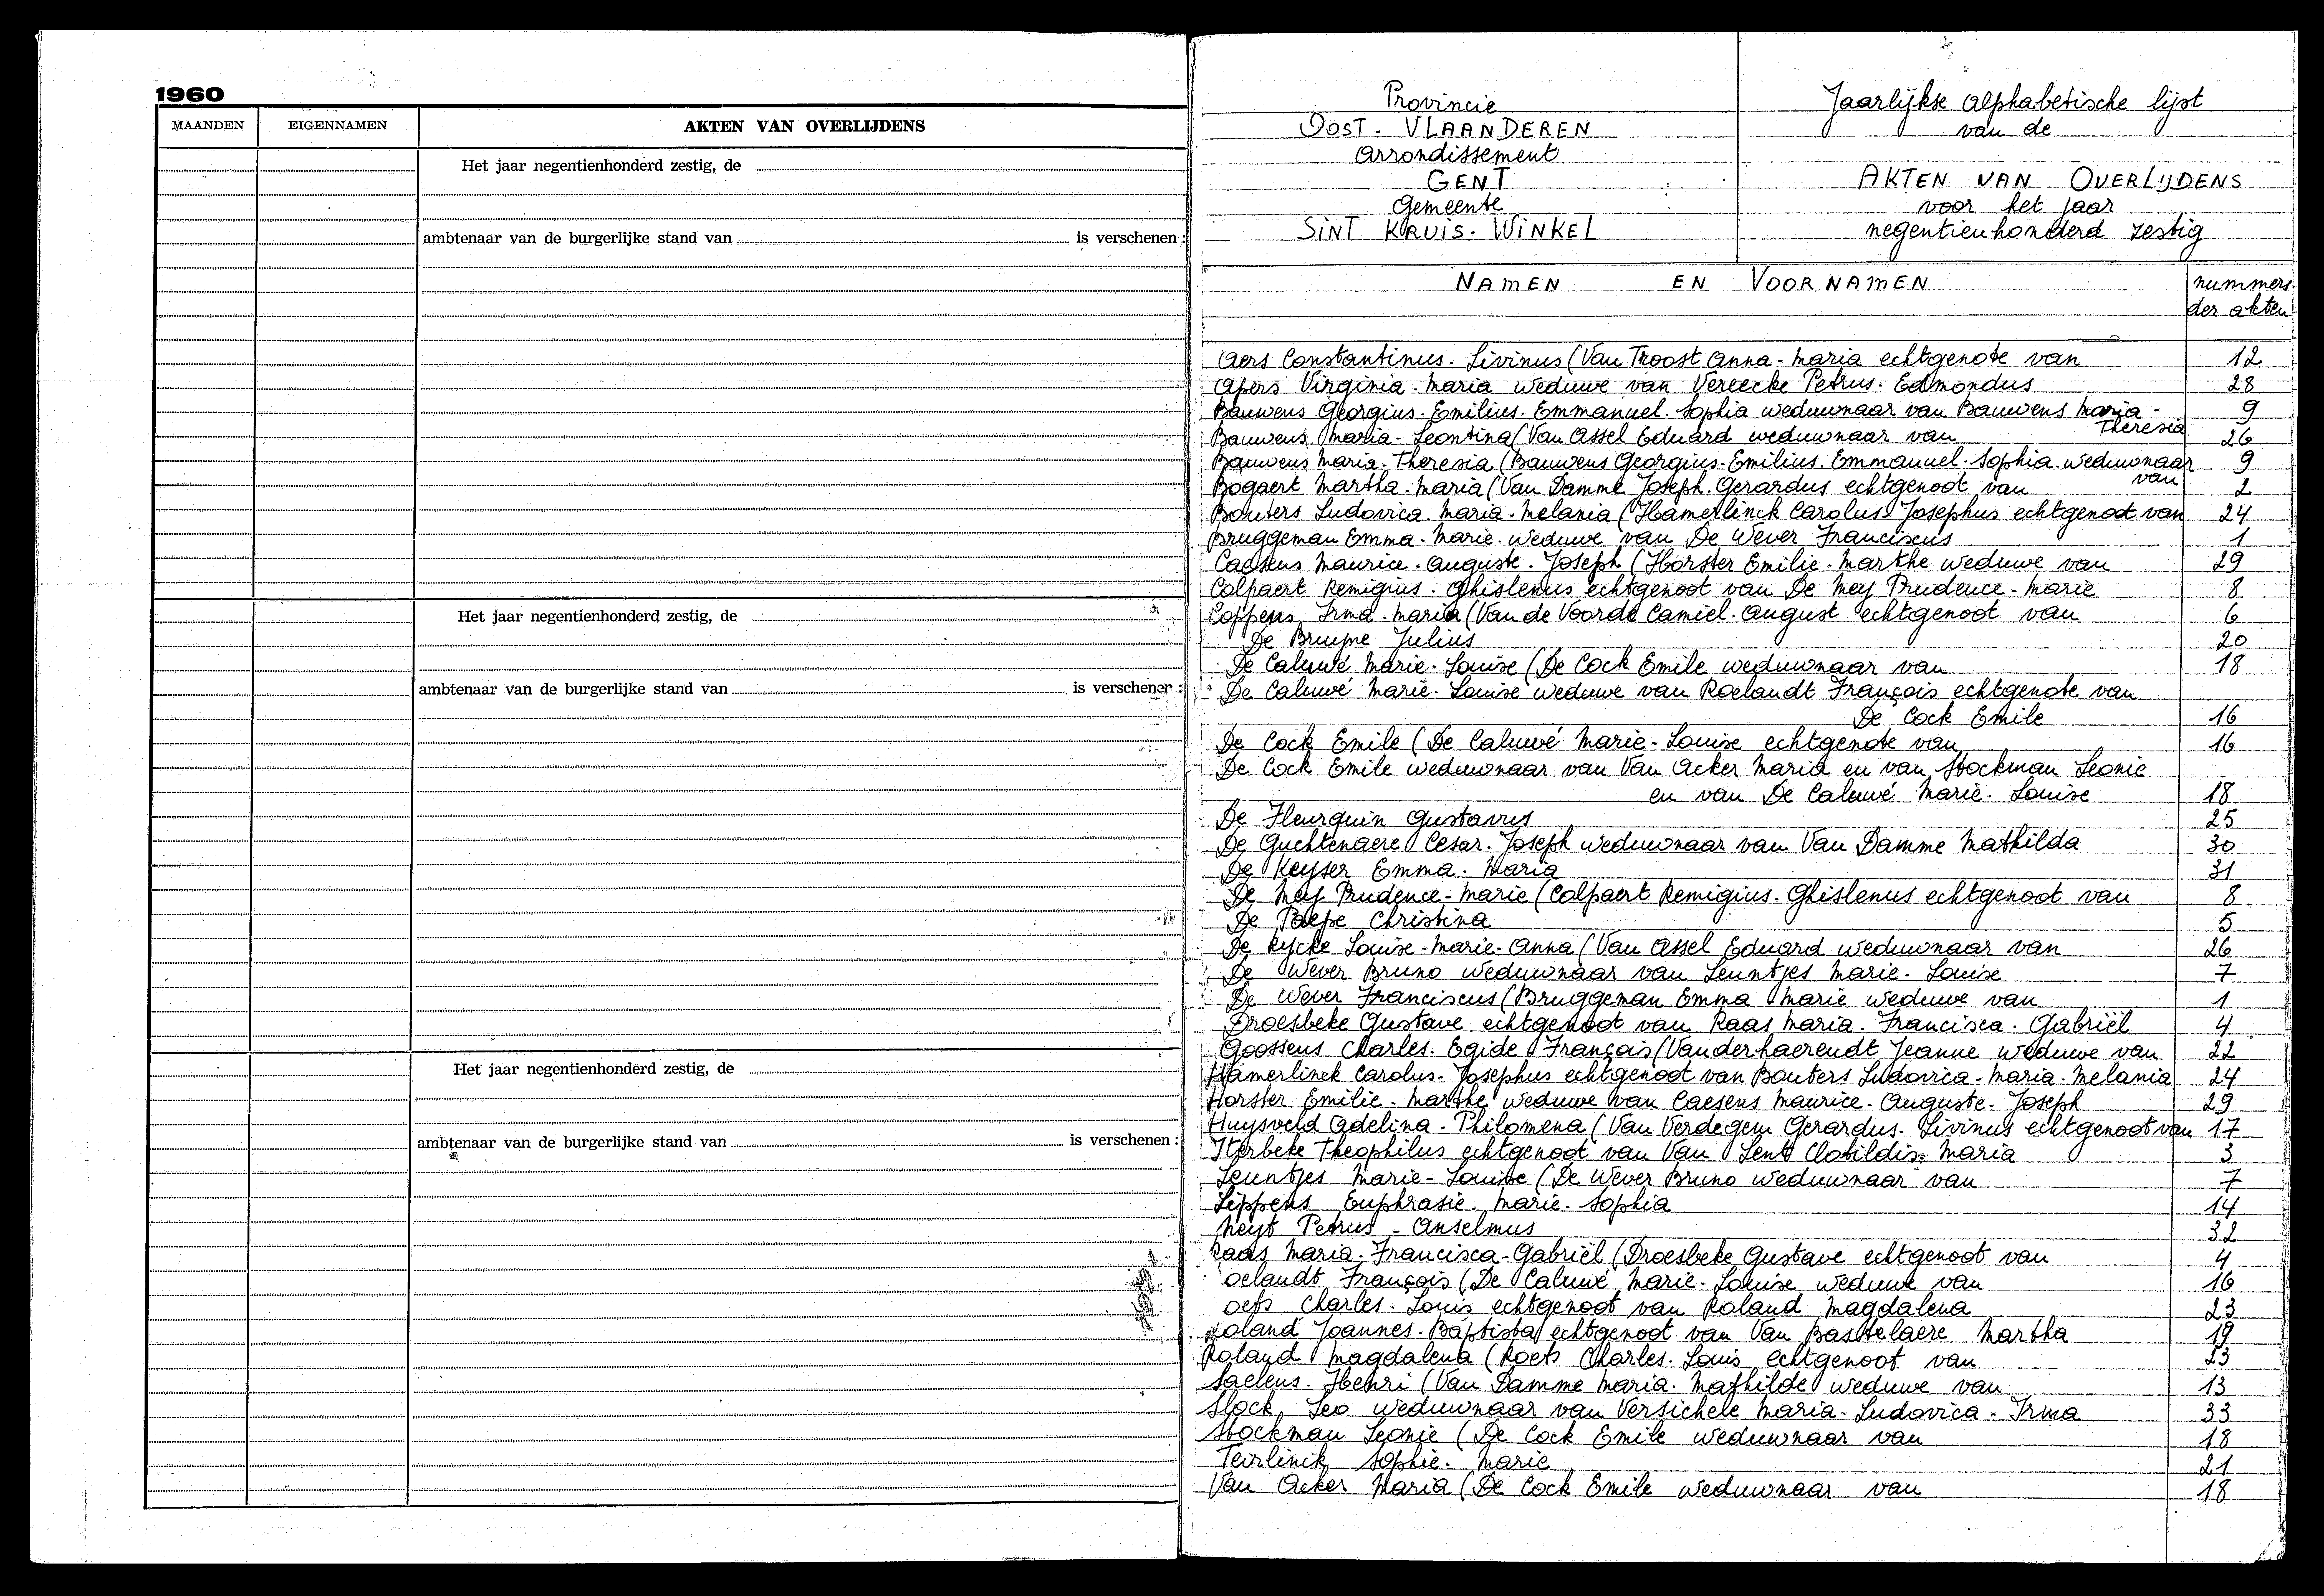 1960
MAANDEN EIGENNAMEN AKTEN VAN OVERLIJDENS
Het jaar negentienhonderd zestig, de
ambtenaar van de burgerlijke stand van is verschenen :
Het jaar negentienhonderd zestig, de
ambtenaar van de burgerlijke stand van is verschenen :
Het jaar negentienhonderd zestig, de
ambtenaar van de burgerlijke stand van is verschenen :
Provincie
OOST-VLAANDEREN
Arrondissement
GENT
Gemeente
SINT KRUIS-WINKEL
Jaarlijkse alphabetische lijst
van de
AKTEN VAN OVERLIJDENS
voor het jaar
negentienhonderd zestig
NAMEN EN VOORNAMEN nummers
der akten
Aers Constantinus-Livinus (Van Troost Anna-Maria echtgenote van 12
Apers Virginia-Maria weduwe van Vereecke Petrus-Edmondus 28
Bauwens Georgius-Emilius-Emmanuel-Sophia weduwnaar van Bauwens Maria- 9
Theresia
Bauwens Maria-Leontina (Van Assel Eduard weduwnaar van 26
Bauwens Maria-Theresia (Bauwens Georgius-Emilius-Emmanuel-Sophia weduwnaar 9
van
Bogaert Martha-Maria (Van Damme Joseph-Gerardus echtgenoot van 2
Bouters Ludovica-Maria-Melania (Hamerlinck Carolus-Josephus echtgenoot van 24
Bruggeman Emma-Marie weduwe van De Wever Franciscus 1
Caesens Maurice-Auguste-Joseph (Horster Emilie-Marthe weduwe van 29
Colpaert Remigius-Ghislenus echtgenoot van De Mey Prudence-Marie 8
Coppens Irma-Maria (Van de Voorde Camiel-August echtgenoot van 6
De Bruyne Julius 20
De Caluwé Marie-Louise (De Cock Emile weduwnaar van 18
De Caluwé Marie-Louise weduwe van Roelandt François echtgenote van
De Cock Emile 16
De Cock Emile (De Caluwé Marie-Louise echtgenote van 16
De Cock Emile weduwnaar van Van Acker Maria en van Stockman Leonie
en van De Caluwé Marie-Louise 18
De Fleurquin Gustavus 25
De Guchtenaere Cesar-Joseph weduwnaar van Van Damme Mathilda 30
De Keyser Emma-Maria 31
De Mey Prudence-Marie (Colpaert Remigius-Ghislenus echtgenoot van 8
De Paepe Christina 5
De Rycke Louise-Marie-Anna (Van Assel Eduard weduwnaar van 26
De Wever Bruno weduwnaar van Leuntjes Marie-Louise 7
De Wever Franciscus (Bruggeman Emma Marie weduwe van 1
Droesbeke Gustave echtgenoot van Raas Maria-Francisca-Gabriël 4
Goossens Charles-Egide François (Vanderhaerendt Jeanne weduwe van 22
Hamerlinck Carolus-Josephus echtgenoot van Bouters Ludovica-Maria-Melania 24
Horster Emilie-Marthe weduwe van Caesens Maurice-Auguste-Joseph 29
Huysveld Adelina-Philomena (Van Verdegem Gerardus-Livinus echtgenoot van 17
Iterbeke Theophilus echtgenoot van Van Lent Clotildis-Maria 3
Leuntjes Marie-Louise (De Wever Bruno weduwnaar van 7
Lippens Euphrasie-Marie-Sophia 14
Neyt Petrus-Anselmus 32
Raas Maria-Francisca-Gabriël (Droesbeke Gustave echtgenoot van 4
oelandt François (De Caluwé Marie-Louise weduwe van 16
oets Charles-Louis echtgenoot van Roland Magdalena 23
Roland Joannes-Baptista echtgenoot van Van Bastelaere Martha 19
Roland Magdalena (Roets Charles-Louis echtgenoot van 23
Saelens-Henri (Van Damme Maria-Mathilde weduwe van 13
Slock Leo weduwnaar van Versichele Maria-Ludovica-Irma 33
Stockman Leonie (De Cock Emile weduwnaar van 18
Teirlinck Sophie-Marie 21
Van Acker Maria (De Cock Emile weduwnaar van 18